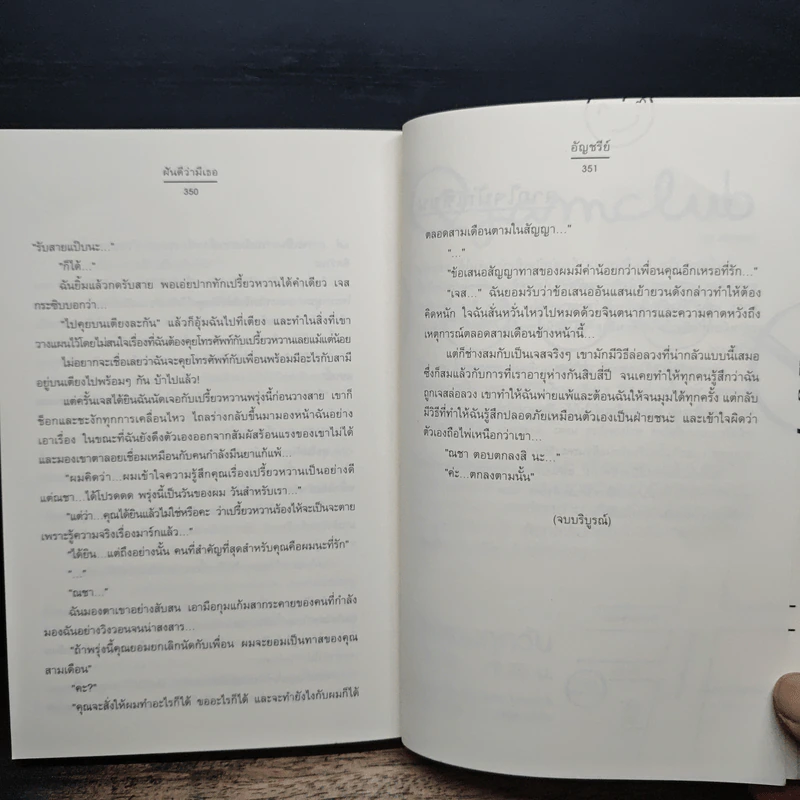 ฝันดีว่ามีเธอ
350
"รับสายแป๊บนะ..."
"ก็ได้..."
ฉันยิ้มแล้วกดรับสาย พอเอ่ยปากทักเปรี้ยวหวานได้คำเดียว เจส
กระซิบบอกว่า...
"ไปคุยบนเตียงละกัน" แล้วก็อุ้มฉันไปที่เตียง และทำในสิ่งที่เขา
วางแผนไว้โดยไม่สนใจเรื่องที่ฉันต้องคุยโทรศัพท์กับเปรี้ยวหวานเลยแม้แต่น้อย
ไม่อยากจะเชื่อเลยว่าฉันจะคุยโทรศัพท์กับเพื่อนพร้อมมีอะไรกับสามี
อยู่บนเตียงไปพร้อมๆ กัน บ้าไปแล้ว!
แต่ครั้นเจสได้ยินฉันนัดเจอกับเปรี้ยวหวานพรุ่งนี้ก่อนวางสาย เขาก็
ช็อกและชะงักทุกการเคลื่อนไหว ไถลร่างกลับขึ้นมามองหน้าฉันอย่าง
เอาเรื่อง ในขณะที่ฉันยังดึงตัวเองออกจากสัมผัสร้อนแรงของเขาไม่ได้
และมองเขาตาลอยเชื่อมเหมือนกับคนกำลังมึนยาแก้แพ้...
"ผมคิดว่า...ผมเข้าใจความรู้สึกคุณเรื่องเปรี้ยวหวานเป็นอย่างดี
แต่ณชา...ได้โปรดตด พรุ่งนี้เป็นวันของผม วันสำหรับเรา..."
"แต่ว่า...คุณได้ยินแล้วไม่ใช่หรือคะ ว่าเปรี้ยวหวานร้องไห้จะเป็นจะตาย
เพราะรู้ความจริงเรื่องมาร์กแล้ว..."
"ได้ยิน...แต่ถึงอย่างนั้น คนที่สำคัญที่สุดสำหรับคุณคือผมนะที่รัก"
"..."
"ณชา..."
ฉันมองตาเขาอย่างสับสน เอามือกุมแก้มสากระคายของคนที่กำลัง
มองฉันอย่างวิงวอนจนน่าสงสาร...
"ถ้าพรุ่งนี้คุณยอมยกเลิกนัดกับเพื่อน ผมจะยอมเป็นทาสของคุณ
สามเดือน"
"คะ?"
"คุณจะสั่งให้ผมทำอะไรก็ได้ ขออะไรก็ได้ และจะทำยังไงกับผมก็ได้
อัญชรีย์
351
ตลอดสามเดือนตามในสัญญา..."
"..."
"ข้อเสนอสัญญาทาสของผมมีค่าน้อยกว่าเพื่อนคุณอีกเหรอที่รัก..."
"เจส..." ฉันยอมรับว่าข้อเสนออันแสนเย้ายวนดังกล่าวทำให้ต้อง
คิดหนัก ใจฉันสั่นหวั่นไหวไปหมดด้วยจินตนาการและความคาดหวังถึง
เหตุการณ์ตลอดสามเดือนข้างหน้านี้...
แต่ก็ช่างสมกับเป็นเจสจริงๆ เขามักมีวิธีล่อลวงที่น่ากลัวแบบนี้เสมอ
ซึ่งก็สมแล้วกับการที่เราอายุห่างกันสิบสี่ปี จนเคยทำให้ทุกคนรู้สึกว่าฉัน
ถูกเจสล่อลวง เขาทำให้ฉันพ่ายแพ้และต้อนฉันให้จนมุมได้ทุกครั้ง แต่กลับ
มีวิธีที่ทำให้ฉันรู้สึกปลอดภัยเหมือนตัวเองเป็นฝ่ายชนะ และเข้าใจผิดว่า
ตัวเองถือไพ่เหนือกว่าเขา...
"ณชา ตอบตกลงสิ นะ..."
"ค่ะ...ตกลงตามนั้น"
(จบบริบูรณ์)